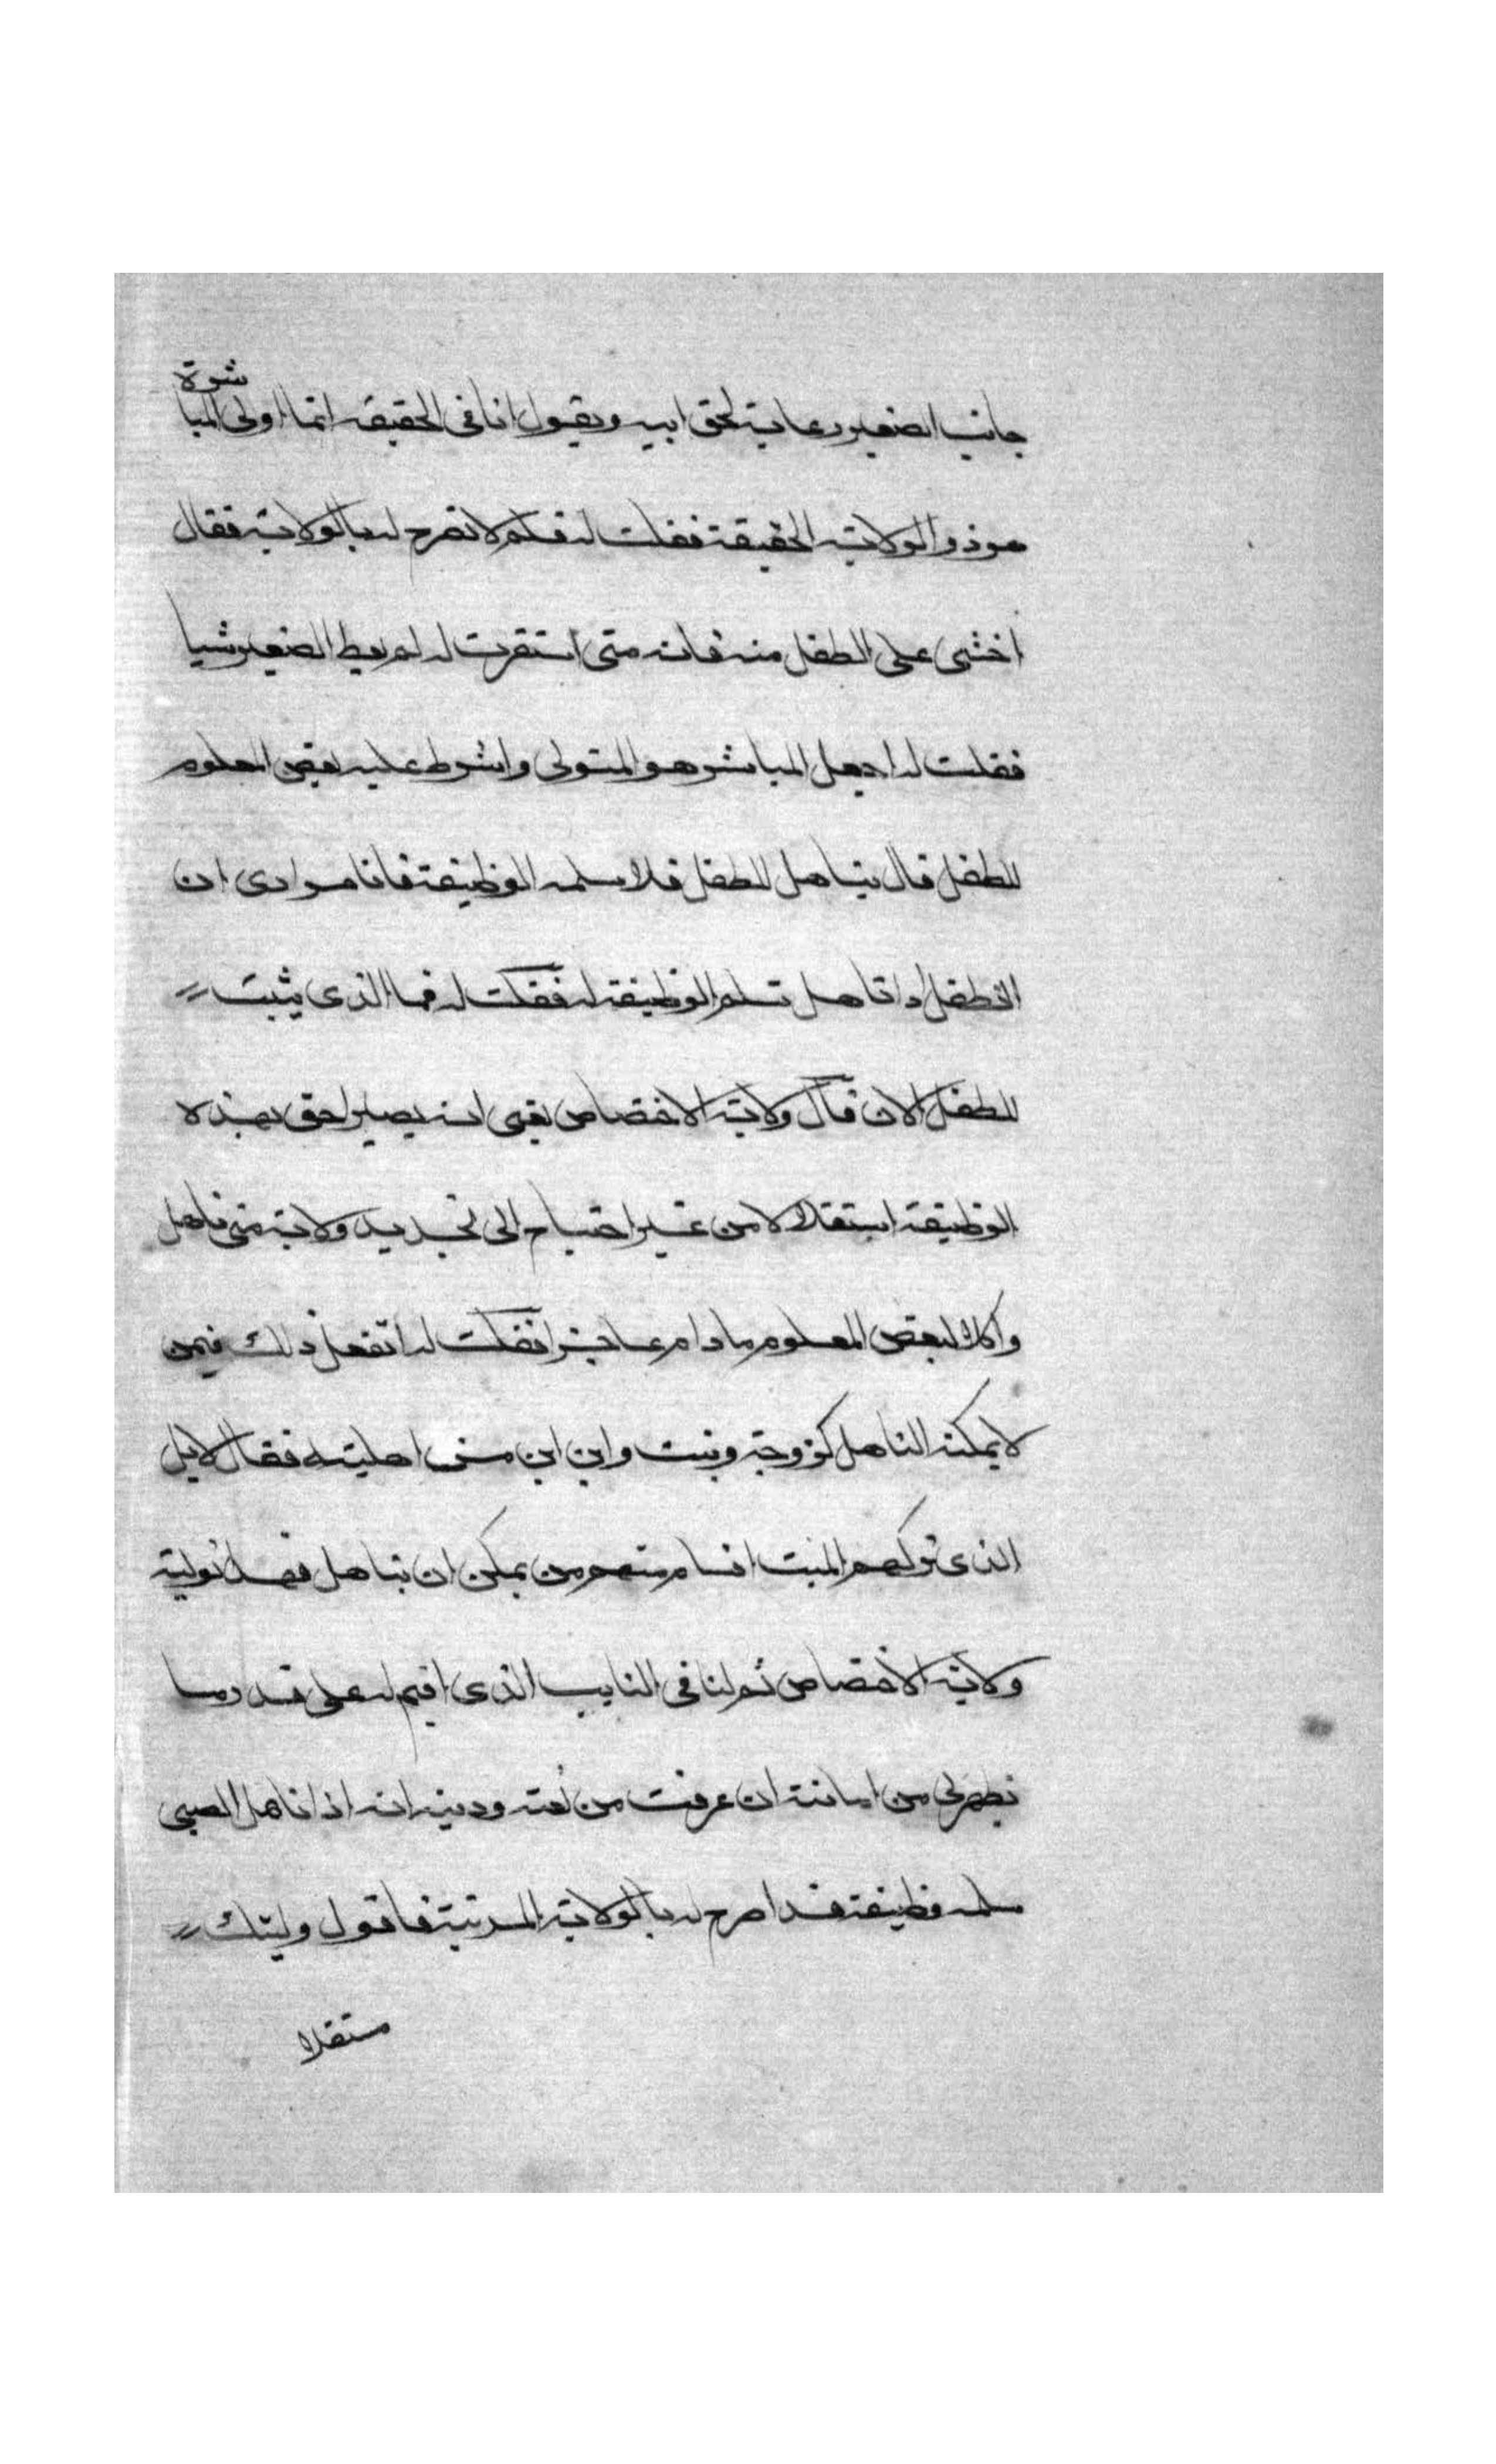 جانب الصغير رعاية لحق ابيه ويقول انا في الحقيقة انما اولى المباشرة
هو ذو الولاية الحقيقة فقلت له فلم لا تصرح له بالولاية فقال
اخشى على الطفل منه فانه متى استقرت له لم يعط الصغير شيا
فقلت له اجعل المباشر هو المتولى واشرط عليه بعض المعلوم
للطفل قال يتاهل الطفل فلا يسلمه الوظيفة فانا مرادى ان
الطفل اذا تاهل تسلم الوظيفة له فقلت له فما الذى يثبت
للطفل الان قال ولاية الاختصاص بمعنى انه يصير احق بهذه
الوظيفة استقلالا من غير احتياج الى تجديد ولاية متى تاهل
واكلا لبعض المعلوم ما دام عاجزا فقلت له اتفعل ذلك فيمن
لا يمكنه التاهل كزوجة وبنت وابن ابن من اهليته فقال لا بل
الذى تركهم الميت اقسام منهم من يمكن ان يتاهل فهذا توليته
ولاية الاختصاص ثم لنا في النايب الذى اقيم له على قدر ما
يظهر لي من امانته ان عرفت من ثقته ودينه انه اذا تاهل الصبى
سلمه وظيفته فقد اصرح له بالولاية المرتبة فاقول وليتك
مستقلا